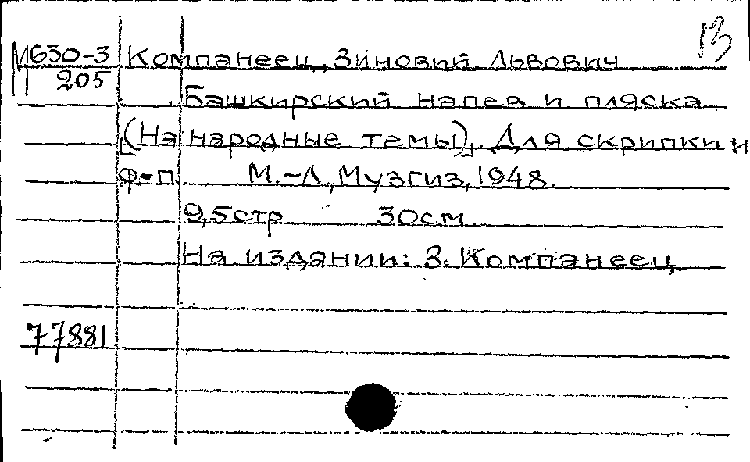 13
М630-3 Компанеец, Зиновий Львович
205
Башкирский напев и пляска
[На народные темы]. Для скрипки и
ф.-п. М.-Л., Музгиз, 1948.
9,5 стр 30 см
На издании: З. Компанеец
77881